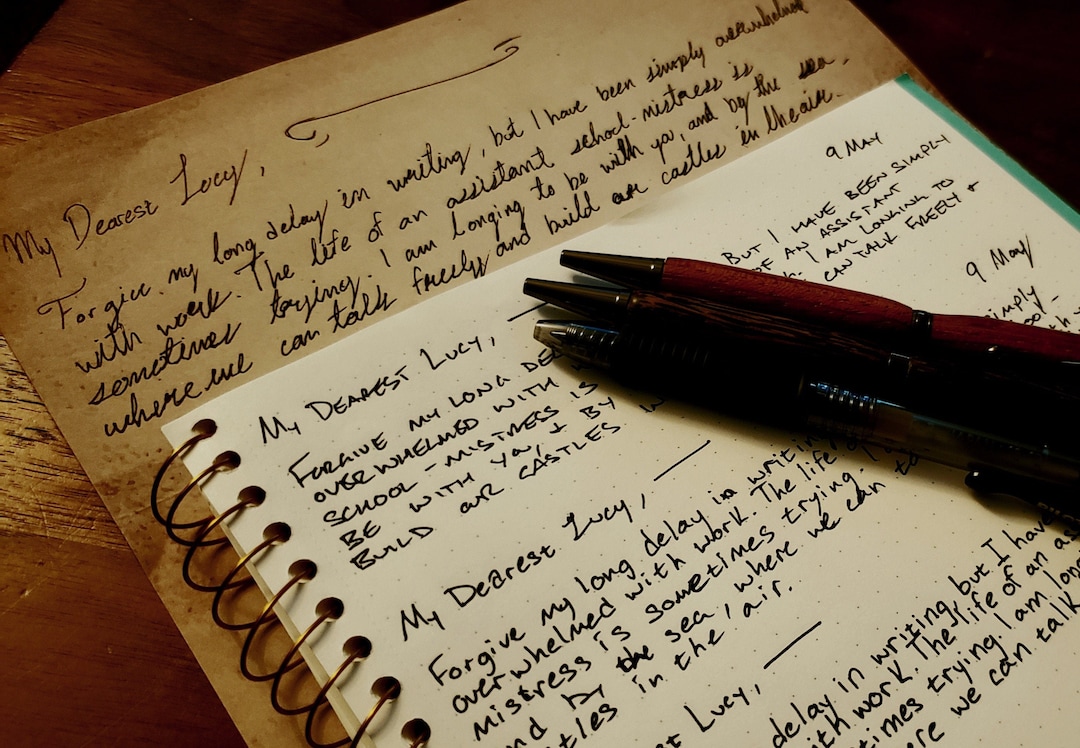 My Dearest Lucy,
Forgive my long delay in writing, but I have been simply overwhelmed
with work. The life of an assistant school-mistress is
sometimes trying. I am longing to be with you, and by the sea,
where we can talk freely and build our castles in the air.
9 MAY
MY DEAREST LUCY,
FORGIVE MY LONG BUT I HAVE BEEN SIMPLY
OVERWHELMED WITH OF AN ASSISTANT
SCHOOL-MISTRESS IS I AM LONGING TO
BE WITH YOU, + BY CAN TALK FREELY +
BUILD OUR CASTLES IN
9 May
My Dearest Lucy,
Forgive my long delay in writing simply
overwhelmed with work. The life
mistress is sometimes trying. I
and by the sea, where we can
in the air.
Lucy,
delay in writing but I have
with work. The life of an
trying. I am
we can talk